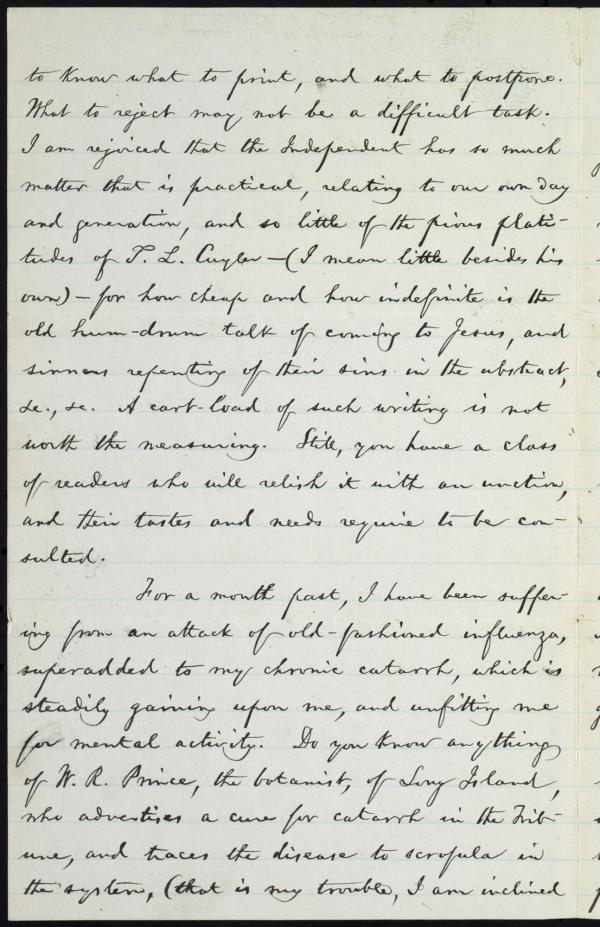 to know what to print, and what to postpone.
What to reject may not be a difficult task.
I am rejoiced that the Independent has so much
matter that is practical, relating to our own day
and generation, and so little of the pious plati-
tudes of T. L. Cuyler—(I mean little besides his
own)—for how cheap and how indefinite is the
old hum-drum talk of coming to Jesus, and
sinners repenting of their sins in the abstract,
&c., &c. A cart-load of such writing is not
worth the measuring. Still, you have a class
of readers who will relish it with an unction,
and their tastes and needs require to be con-
sulted.
For a month past, I have been suffer-
ing from an attack of old-fashioned influenza,
superadded to my chronic catarrh, which is
steadily gaining upon me, and unfitting me
for mental activity. Do you know anything
of W. R. Prince, the botanist, of Long Island,
who advertises a cure for catarrh in the Trib-
une, and traces the disease to scrofula in
the system, (that is my trouble, I am inclined